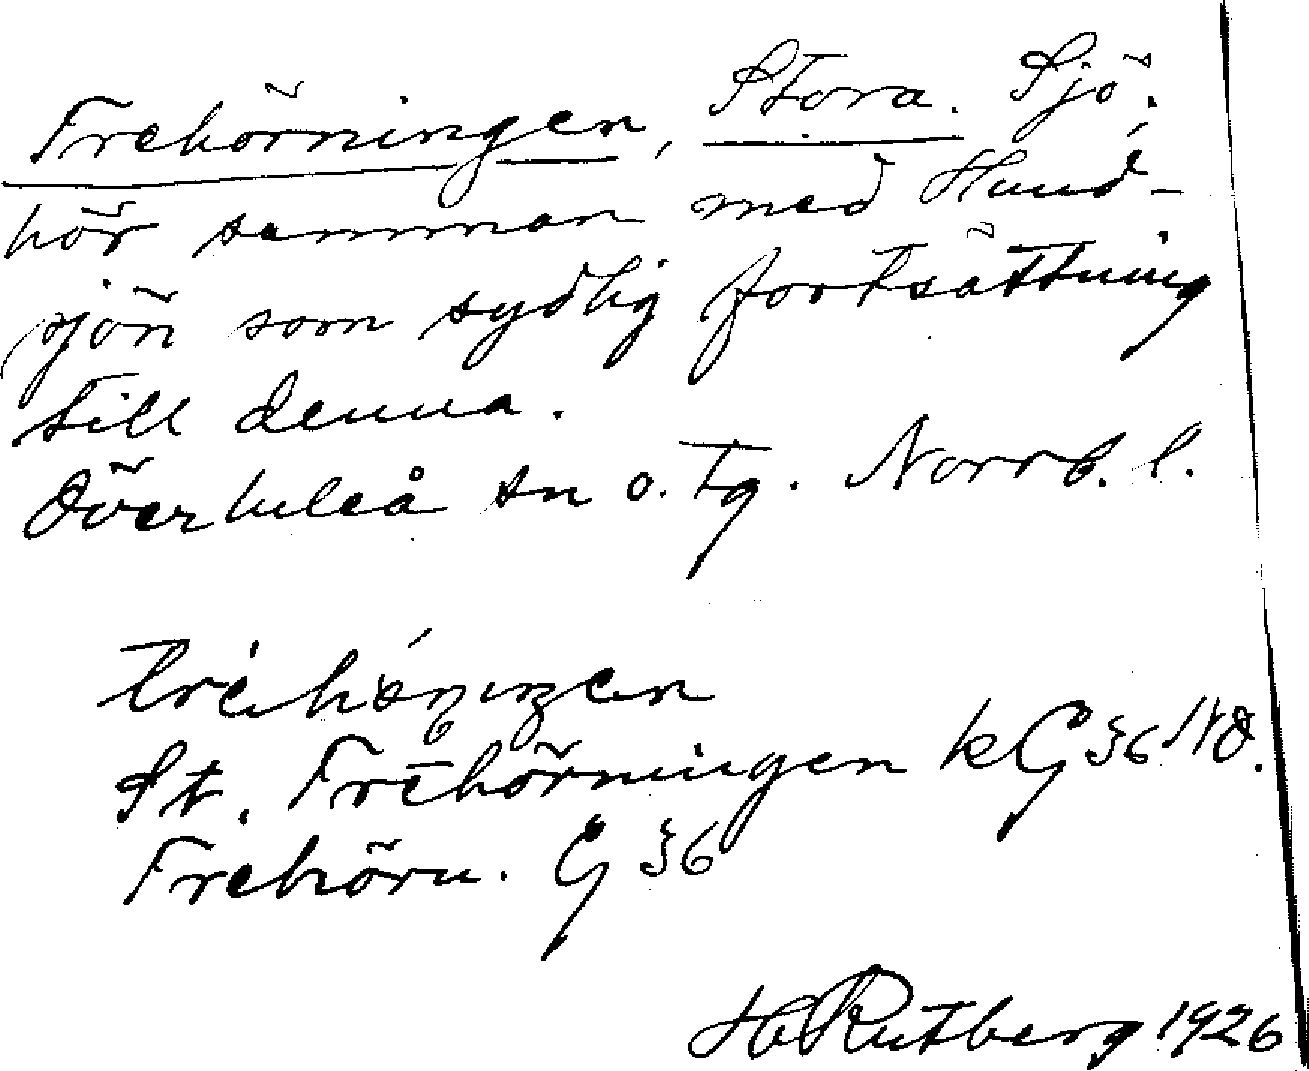 Trehörningen, Stora. Sjö,
hör samman med Hund-
sjön som sydlig fortsättning
till denna.
Överluleå sn o. tg. Norrb. l.
St. Trehörningen kG 36 NO.
Trehörn. G 36
H Rutberg 1926